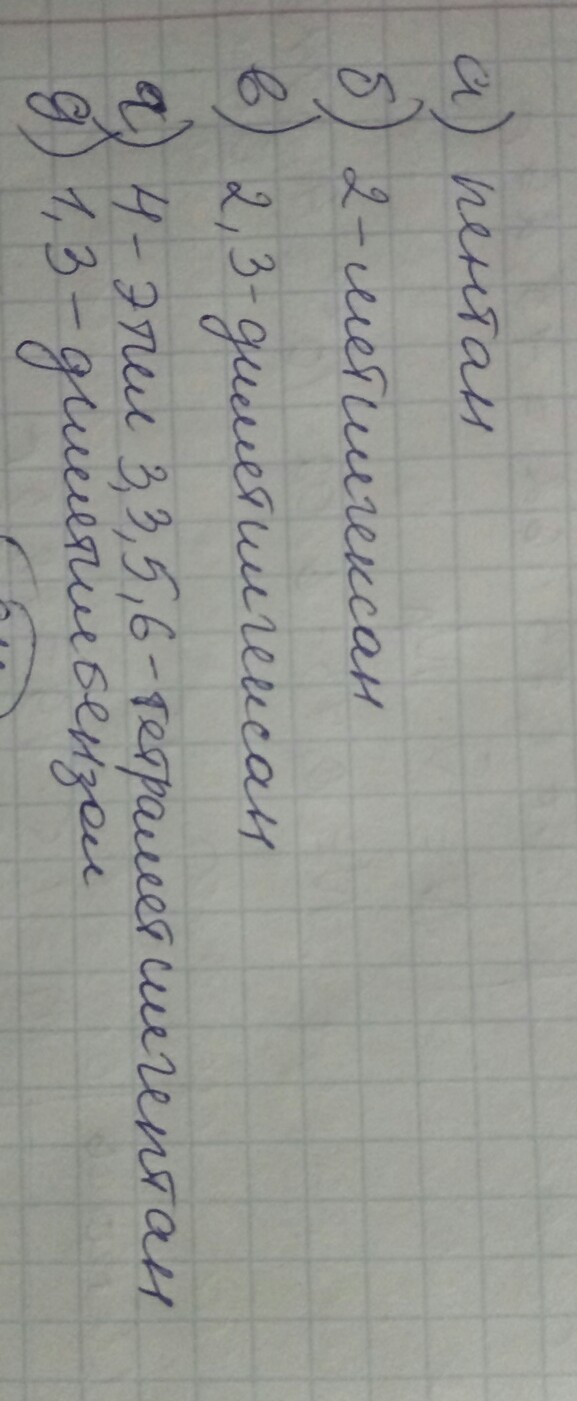 а) пентан
б) 2-метилгексан
в) 2,3-диметилгексан
г) 4-этил 3,3,5,6-тетраметилгептан
д) 1,3-диметилбензол